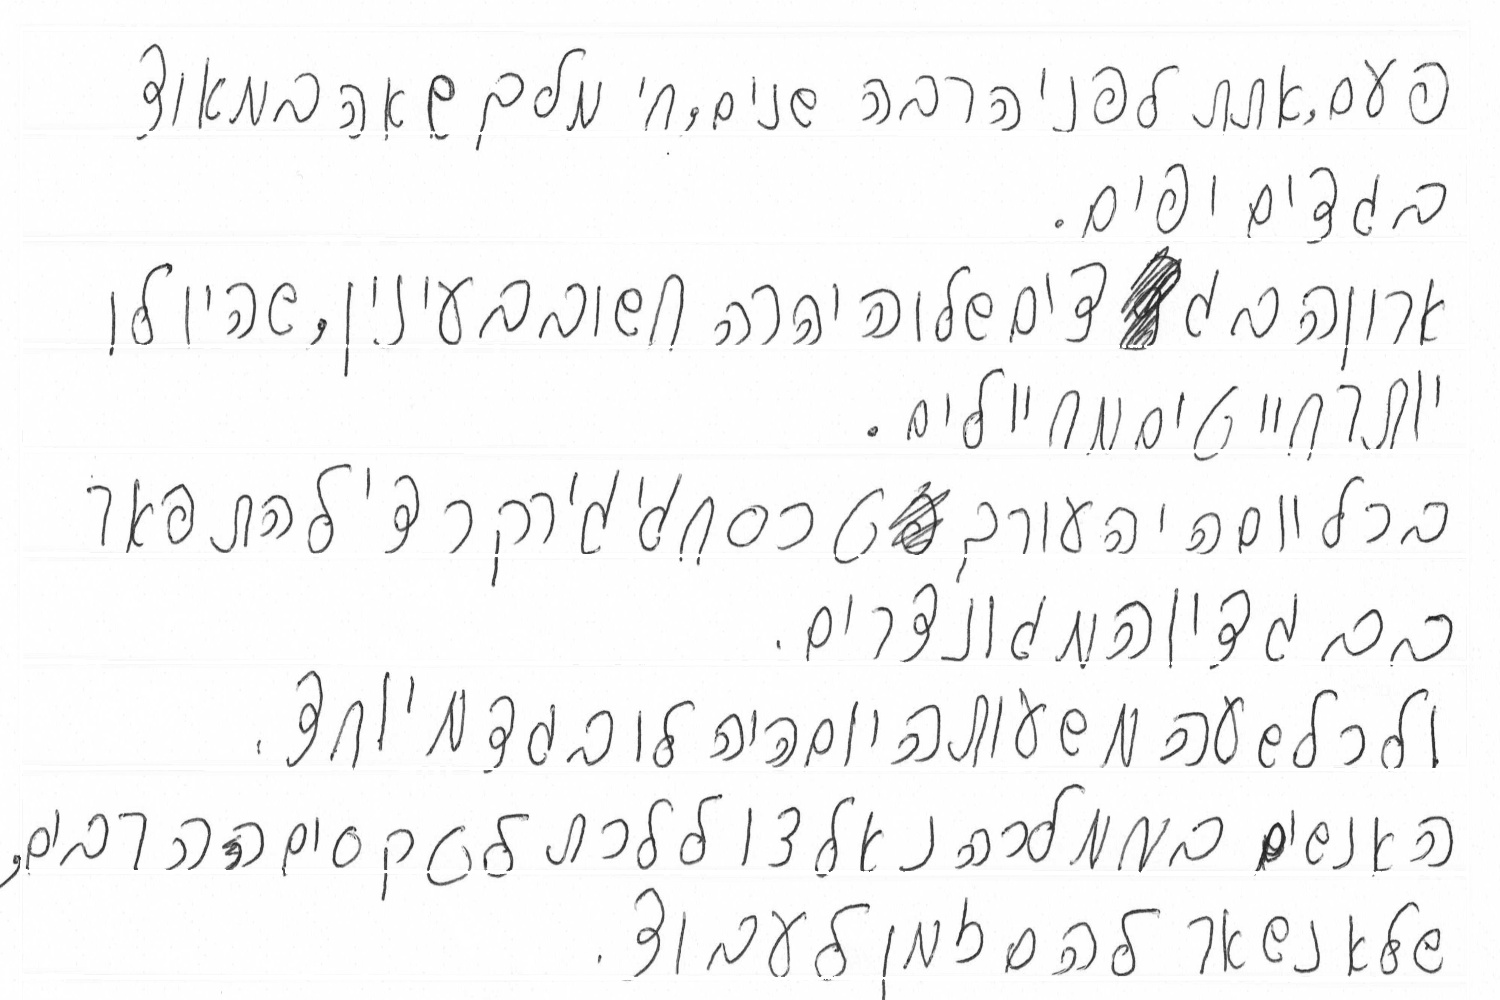 פעם, אתת לפני הרבה שנים, חי מלך שאהב מאוד
בגדים יפים.
ארון הבגדים שלו היה רה חשוב בעיניו, שהיו לו
יותר חייטים מחיילים.
בכל יום היה עורך טכס חגיגי רק כדי להתפאר
בבגדיו המגונדרים.
ולכל שעה משעות היום היה לו בגד מיוחד.
האנשים בממלכה נאלצו ללכת לטקסים הרבים,
שלא נשאר להם זמן לעבוד.